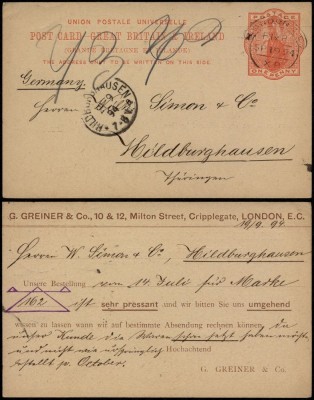 UNION POSTALE UNIVERSELLE
POST CARD-GREAT BRITAIN & IRELAND
(GRANDE BRETAGNE ET IRLANDE)
THE ADDRESS ONLY TO BE WRITTEN ON THIS SIDE
POSTAGE
ONE PENNY
Germany
Herren
HILDBURGHAUSEN
Simon & Co:
Hildburghausen
Thüringen
G. GREINER & Co., 10 & 12, Milton Street, Cripplegate, LONDON, E.C.
19/9. 94
Herren W. Simon & Co, Hildburghausen
Unsere Bestellung vom 14. Juli für Marke
162 ist sehr pressant und wir bitten Sie umgehend
wissen zu lassen wann wir auf bestimmte Absendung rechnen können, da
unser Kunde die Waren schon jetzt haben möchte
und nicht wie ursprünglich Hochachtend
bestellt p. October. G. GREINER & Co.